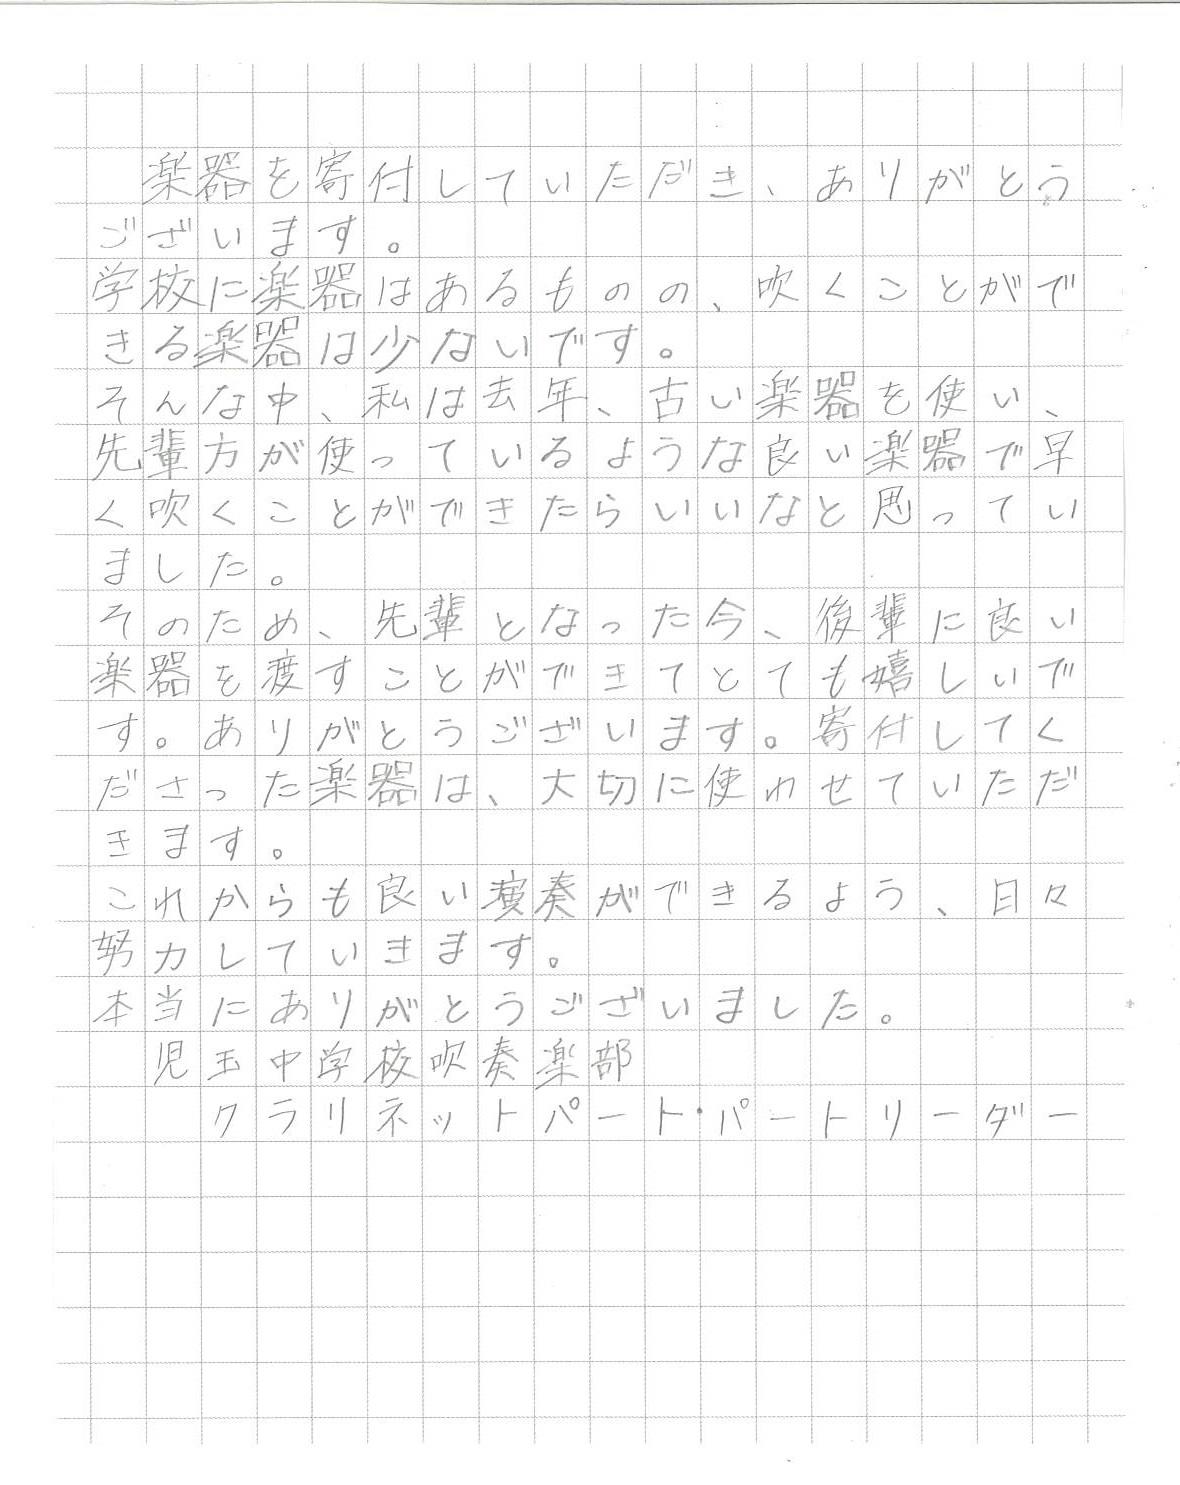 楽器を寄付していただき、ありがとう
ございます。
学校に楽器はあるものの、吹くことがで
きる楽器は少ないです。
そんな中、私は去年、古い楽器を使い、
先輩方が使っているような良い楽器で早
く吹くことができたらいいなと思ってい
ました。
そのため、先輩となった今、後輩に良い
楽器を渡すことができてとても嬉しいで
す。ありがとうございます。寄付してく
ださった楽器は、大切に使わせていただ
きます。
これからも良い演奏ができるよう、日々
努力していきます。
本当にありがとうございました。
児玉中学校吹奏楽部
クラリネットパート・パートリーダー